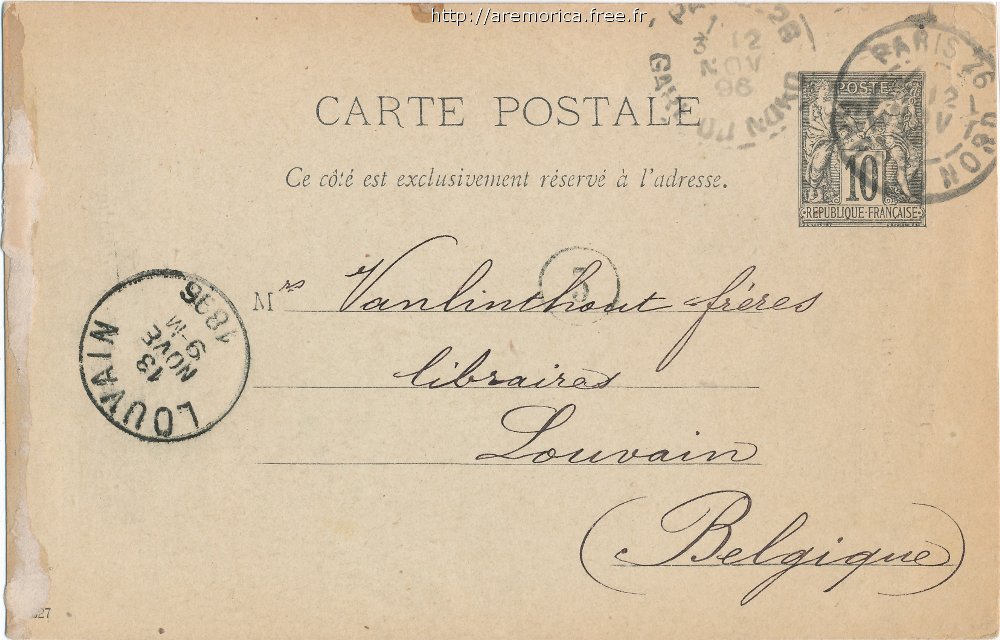 http://aremorica.free.fr
3 12
NOV
96
GARE DU NORD
PARIS
12
NORD
POSTE
10
REPUBLIQUE FRANÇAISE
CARTE POSTALE
Ce côté est exclusivement réservé à l'adresse.
5
Mrs Vanlinthout frères
libraires
Louvain
(Belgique)
LOUVAIN
13
NOVE
9-M
1896